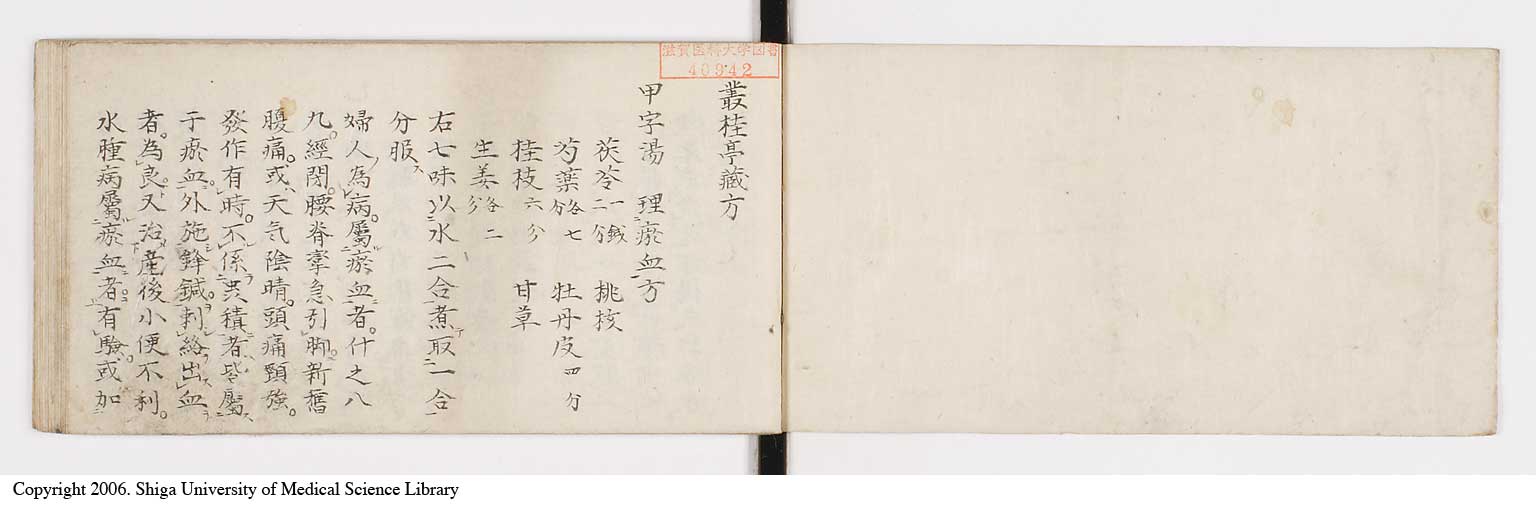 叢桂亭藏方
甲字湯 理瘀血方
茯苓一錢二分 桃核
芍藥各七分 牡丹皮四分
桂枝六分 甘草
生姜各二分
右七味以水二合煮取一合
分服
婦人為病屬瘀血者什之八
九經閉腰脊攣急引脚新舊
腹痛或天气陰晴頭痛頸強
發作有時不係其積者皆屬
于瘀血外施鋒鍼刺絡出血
者為良又治産後小便不利
水腫病屬瘀血者有驗或加
滋賀医科大学図書
40942
Copyright 2006. Shiga University of Medical Science Library